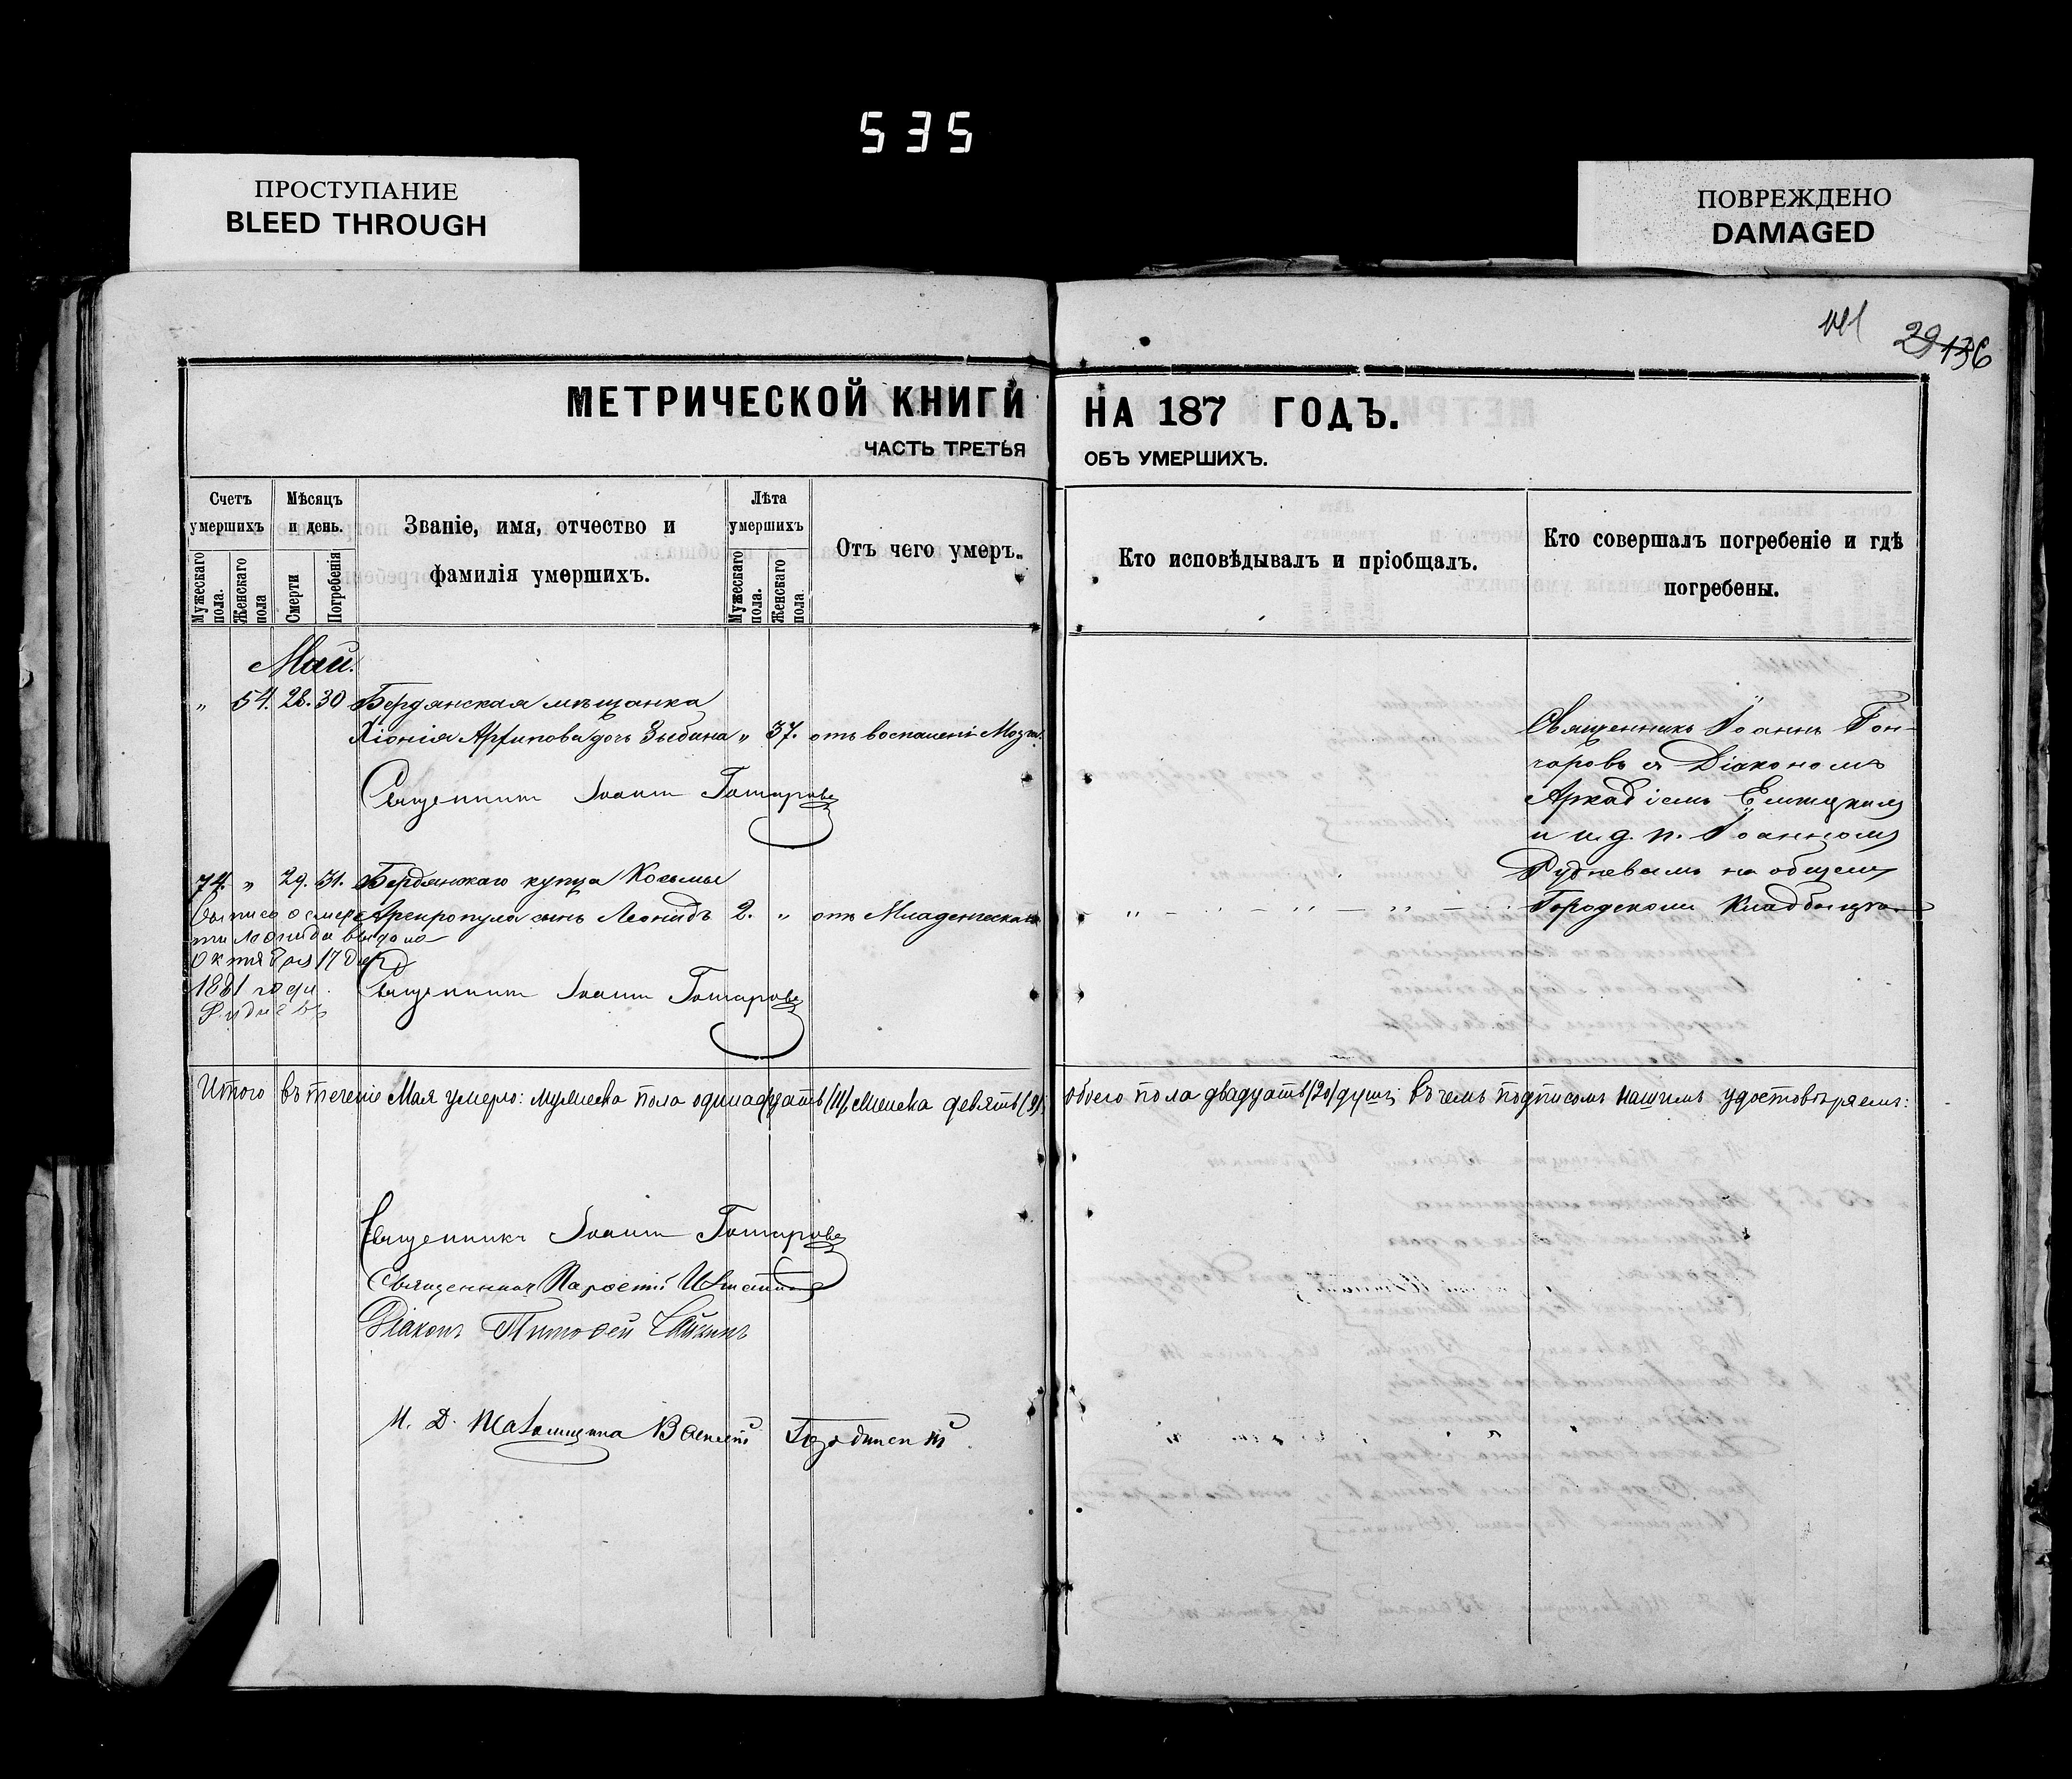 535
ПРОСТУПАНИЕ
BLEED THROUGH
ПОВРЕЖДЕНО
DAMAGED
29 136
МЕТРИЧЕСКОЙ КНИГИ НА 187 ГОДЪ.
ЧАСТЬ ТРЕТЬЯ ОБЪ УМЕРШИХЪ.
Счетъ умершихъ
Мужескаго пола.
Женскаго пола
Мѣсяцъ и день.
Смерти
Погребенія
Званіе, имя, отчество и
фамилія умершихъ.
Лѣта умершихъ
Мужескаго пола.
Женскаго пола
Отъ чего умеръ.
Кто исповѣдывалъ и пріобщалъ.
Кто совершалъ погребеніе и гдѣ
погребены.
Май.
" 54. 28. 30 Бердянская мѣщанка
Хіонія Архипова дочь Зыбина " 37. отъ воспаленія Мозга.
Священникъ Іоаннъ Гончаровъ
Священникъ Іоаннъ Гон-
чаровъ съ Діакономъ
Аркадіемъ
и и. д. п. Іоанномъ
Рудневымъ на общемъ
Городскомъ Кладбищѣ
74. " 29. 31. Бердянскаго купца Косьмы
Аргиропула сынъ Леонидъ 2. " отъ Младенческой
Выпись о смер
ти Леонида выдана
Октября 17 дня
1881 года.
Рудневъ
Священникъ Іоаннъ Гончаровъ
Итого въ теченіе Мая умерло: мужеска пола одинадцать (11), женска девять (9) обоего пола двадцать (20) душъ; въ чемъ подписомъ нашимъ удостовѣряемъ:
Священникъ Іоаннъ Гончаровъ
Священникъ
Діаконъ Тимофей
И. Д. Псаломщика Василій